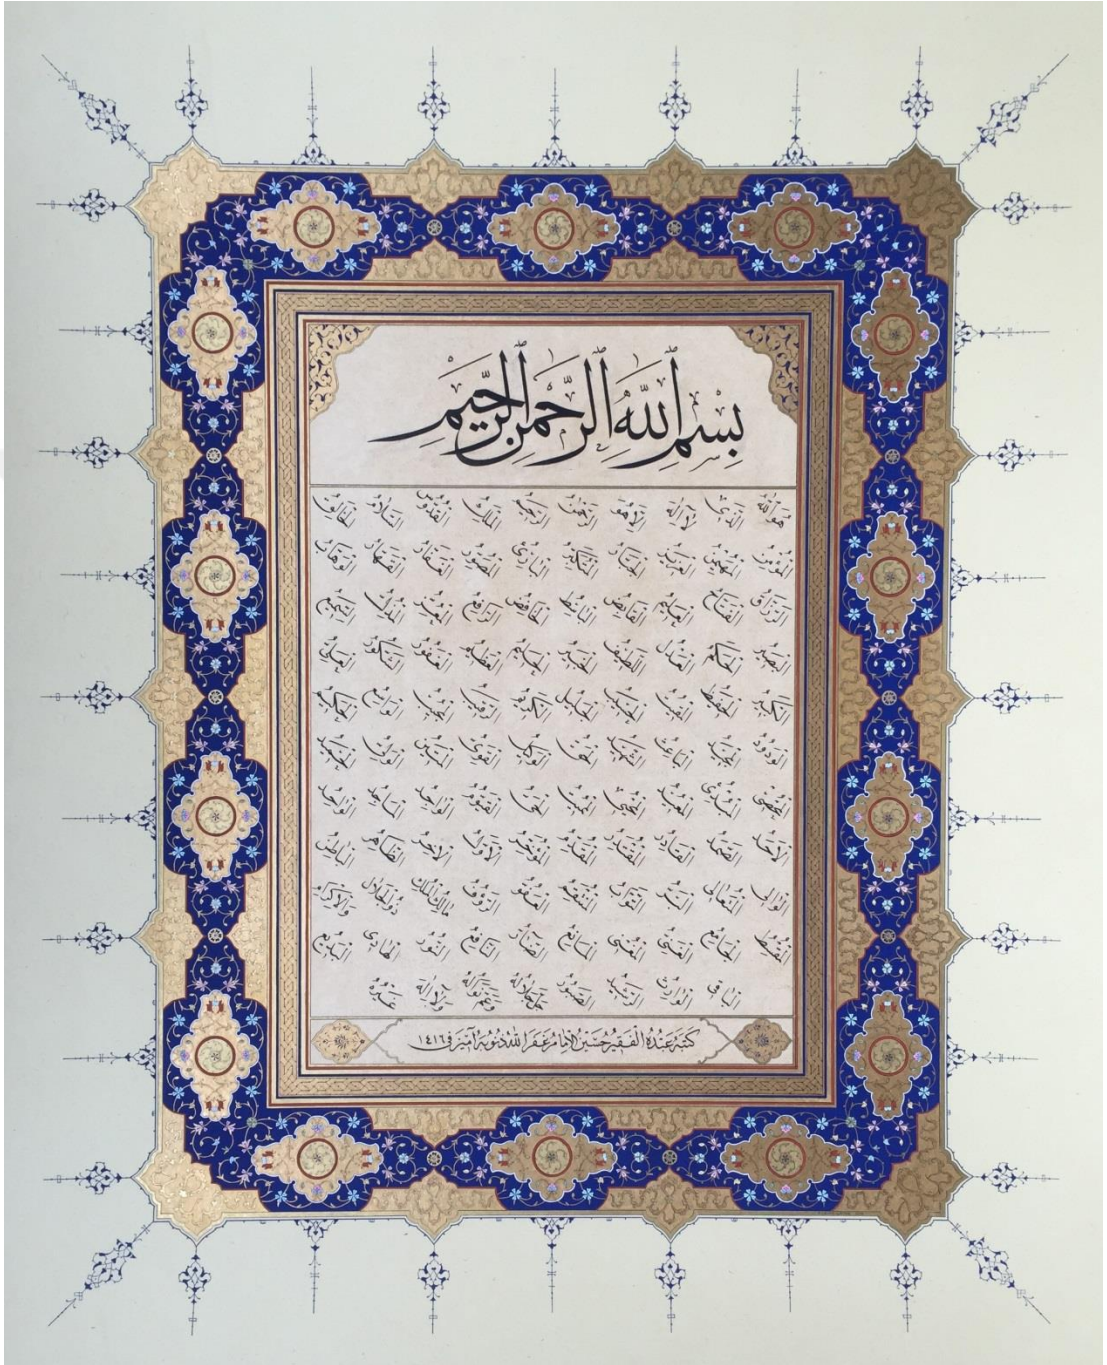 بسم الله الرحمن الرحيم
هو الله الذي لا اله الا هو الرحمن الرحيم الملك القدوس السلام الخالق
المؤمن المهيمن العزيز الجبار المتكبر البارئ المصور الغفار القهار الوهاب
الرزاق الفتاح العليم القابض الباسط الخافض الرافع المعز المذل السميع
البصير الحكم العدل اللطيف الخبير الحليم العظيم الغفور الشكور العلي
الكبير الحفيظ المقيت الحسيب الجليل الكريم الرقيب المجيب الواسع الحكيم
الودود المجيد الباعث الشهيد الحق الوكيل القوي المتين الولي الحميد
المحصي المبدئ المعيد المحيي المميت الحي القيوم الواجد الماجد الواحد
الاحد الصمد القادر المقتدر المقدم المؤخر الاول الاخر الظاهر الباطن
الوالي المتعالي البر التواب المنتقم العفو الرؤف مالك الملك ذو الجلال والاكرام
المقسط الجامع الغني المغني المانع الضار النافع النور الهادي البديع
الباقي الوارث الرشيد الصبور جل جلاله وعم نواله ولا اله غيره
كتبه عبده الفقير حسين غفر الله ذنوبه آمين في ١٤١٦